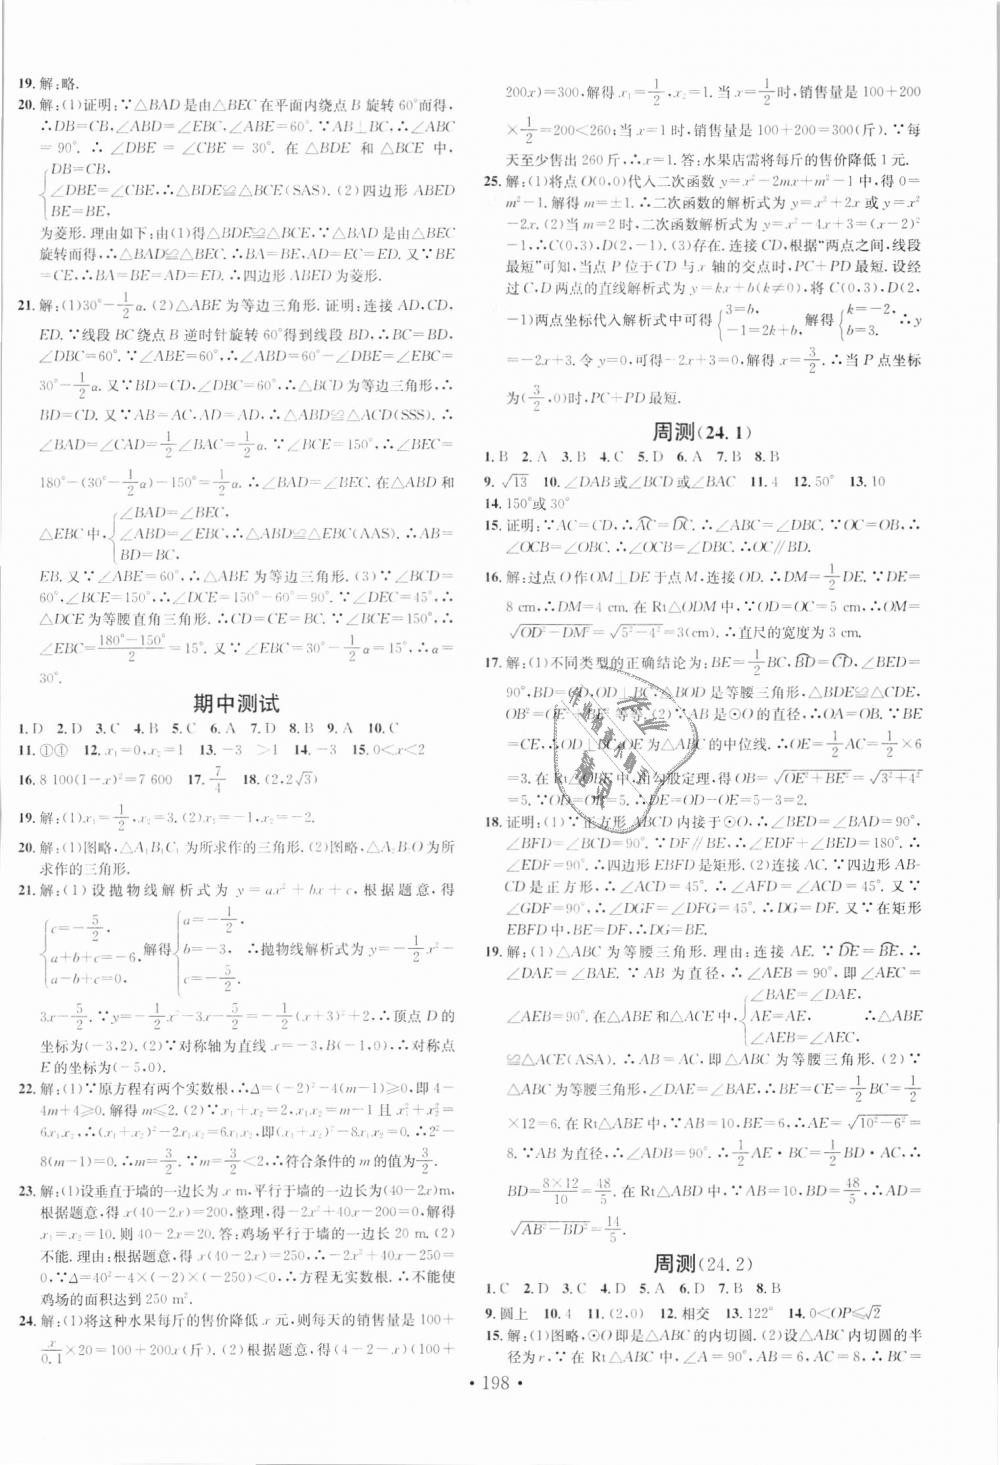 19. 解:略.
20. 解:(1)证明:∵△BAD是由△BEC在平面内绕点B旋转60°而得,
∴DB=CB,∠ABD=∠EBC,∠ABE=60°. ∵AB⊥BC,∴∠ABC
=90°. ∴∠DBE=∠CBE=30°. 在△BDE和△BCE中,
{DB=CB,
∠DBE=∠CBE,∴△BDE≌△BCE(SAS). (2)四边形ABED
BE=BE,
为菱形. 理由如下:由(1)得△BDE≌△BCE,∵△BAD是由△BEC
旋转而得,∴△BAD≌△BEC. ∴BA=BE,AD=EC=ED. 又∵BE
=CE,∴BA=BE=AD=ED. ∴四边形ABED为菱形.
21. 解:(1)30°-1/2α. (2)△ABE为等边三角形. 证明:连接AD,CD,
ED. ∵线段BC绕点B逆时针旋转60°得到线段BD,∴BC=BD,
∠DBC=60°. ∵∠ABE=60°,∴∠ABD=60°-∠DBE=∠EBC=
30°-1/2α. 又∵BD=CD,∠DBC=60°,∴△BCD为等边三角形,∴
BD=CD. 又∵AB=AC,AD=AD,∴△ABD≌△ACD(SSS). ∴
∠BAD=∠CAD=1/2∠BAC=1/2α. ∵∠BCE=150°,∴∠BEC=
180°-(30°-1/2α)-150°=1/2α. ∴∠BAD=∠BEC. 在△ABD和
△EBC中,{∠BAD=∠BEC,
∠ABD=∠EBC,∴△ABD≌△EBC(AAS). ∴AB=
BD=BC,
EB. 又∵∠ABE=60°,∴△ABE为等边三角形. (3)∵∠BCD=
60°,∠BCE=150°,∴∠DCE=150°-60°=90°. ∵∠DEC=45°,∴
△DCE为等腰直角三角形. ∴CD=CE=BC. ∵∠BCE=150°,∴
∠EBC=(180°-150°)/2=15°. 又∵∠EBC=30°-1/2α=15°. ∴α=
30°.
期中测试
1. D 2. D 3. C 4. B 5. C 6. A 7. D 8. B 9. A 10. C
12. x₁=0,x₂=1 13. -3 >1 14. -3 15. 0<x<2
16. 8 100(1-x)²=7 600 17. 7/4 18. (2,2√3)
19. 解:(1)x₁=1/2,x₂=3. (2)x₁=-1,x₂=-2.
20. 解:(1)图略,△A₁B₁C₁为所求作的三角形. (2)图略,△A₂B₂O为所
求作的三角形.
21. 解:(1)设抛物线解析式为y=ax²+bx+c,根据题意,得
{c=-5/2,
a+b+c=-6,
a-b+c=0, 解得{a=-1/2,
b=-3,
c=-5/2, ∴抛物线解析式为y=-1/2x²-
3x-5/2. ∵y=-1/2x²-3x-5/2=-1/2(x+3)²+2,∴顶点D的
坐标为(-3,2). (2)∵对称轴为直线x=-3,B(-1,0),∴对称点
E的坐标为(-5,0).
22. 解:(1)∵原方程有两个实数根,∴Δ=(-2)²-4(m-1)≥0,即4-
4m+4≥0. 解得m≤2. (2)∵x₁+x₂=2,x₁x₂=m-1且x₁²+x₂²=
6x₁x₂,∴(x₁+x₂)²-2x₁x₂=6x₁x₂,即(x₁+x₂)²-8x₁x₂=0. ∴2²-
8(m-1)=0. ∴m=3/2. ∵m=3/2<2,∴符合条件的m的值为3/2.
23. 解:(1)设垂直于墙的一边长为x m,平行于墙的一边长为(40-2x)m,
根据题意,得x(40-2x)=200,整理,得-2x²+40x-200=0,解得
x₁=x₂=10. 则40-2x=40-20=20. 答:鸡场平行于墙的一边长20 m. (2)
不能. 理由:根据题意,得x(40-2x)=250,∴-2x²+40x-250=
0,∵Δ=40²-4×(-2)×(-250)<0,∴方程无实数根. ∴不能使
鸡场的面积达到250 m².
24. 解:(1)将这种水果每斤的售价降低x元,则每天的销售量是100+
x/0.1×20=100+200x(斤). (2)根据题意,得(4-2-x)(100+
200x)=300,解得x₁=1/2,x₂=1. 当x=1/2时,销售量是100+200
×1/2=200<260;当x=1时,销售量是100+200=300(斤). ∵每
天至少售出260斤,∴x=1. 答:水果店需将每斤的售价降低1元.
25. 解:(1)将点O(0,0)代入二次函数y=x²-2mx+m²-1中,得0=
m²-1. 解得m=±1. ∴二次函数的解析式为y=x²+2x或y=x²
-2x. (2)当m=2时,二次函数解析式为y=x²-4x+3=(x-2)²
-1,∴C(0,3),D(2,-1). (3)存在. 连接CD,根据“两点之间,线段
最短”可知,当点P位于CD与x轴的交点时,PC+PD最短. 设经
过C,D两点的直线解析式为y=kx+b(k≠0),将C(0,3),D(2,
-1)两点坐标代入解析式中可得{3=b,
-1=2k+b, 解得{k=-2,
b=3. ∴y
=-2x+3. 令y=0,可得-2x+3=0,解得x=3/2. ∴当P点坐标
为(3/2,0)时,PC+PD最短.
周测(24.1)
1. B 2. A 3. B 4. C 5. D 6. A 7. B 8. B
9. √13 10. ∠DAB或∠BCD或∠BAC 11. 4 12. 50° 13. 10
14. 150°或30°
15. 证明:∵AC=CD,∴AC=DC. ∴∠ABC=∠DBC. ∵OC=OB,∴
∠OCB=∠OBC. ∴∠OCB=∠DBC. ∴OC∥BD.
16. 解:过点O作OM⊥DE于点M,连接OD. ∴DM=1/2DE. ∵DE=
8 cm,∴DM=4 cm. 在Rt△ODM中,∵OD=OC=5 cm,∴OM=
√(OD²-DM²)=√(5²-4²)=3(cm). ∴直尺的宽度为3 cm.
17. 解:(1)不同类型的正确结论为:BE=1/2BC,BD=CD,∠BED=
90°,∠BOD=∠A,OD⊥BC,△BOD是等腰三角形,△BDE≌△CDE,
OB²=OE²+BE²等等. (2)∵AB是⊙O的直径,∴OA=OB. ∵OD
⊥BC,∴BE=CE,∴OE为△ABC的中位线. ∴OE=1/2AC=1/2×6
=3. 在Rt△OBE中,由勾股定理,得OB=√(OE²+BE²)=√(3²+4²)=
5. ∵OD=OB=5,∴DE=OD-OE=5-3=2.
18. 证明:(1)∵正方形ABCD内接于⊙O,∴∠BED=∠BAD=90°,
∠BFD=∠BCD=90°. 又∵DF∥BE,∴∠EDF+∠BED=180°. ∴
∠EDF=90°. ∴四边形EBFD是矩形. (2)连接AC. ∵四边形AB-
CD是正方形,∴∠ACD=45°. ∴∠AFD=∠ACD=45°. 又∵
∠GDF=90°,∴∠DGF=∠DFG=45°. ∴DG=DF. 又∵在矩形
EBFD中,BE=DF,∴DG=BE.
19. 解:(1)△ABC为等腰三角形. 理由:连接AE. ∵DE=BE,∴
∠DAE=∠BAE. ∵AB为直径,∴∠AEB=90°,即∠AEC=
∠AEB=90°. 在△ABE和△ACE中,{∠BAE=∠DAE,
AE=AE,
∠AEB=∠AEC, ∴△ABE
≌△ACE(ASA). ∴AB=AC,即△ABC为等腰三角形. (2)∵
△ABC为等腰三角形,∠DAE=∠BAE,∴BE=CE=1/2BC=1/2
×12=6. 在Rt△ABE中,∵AB=10,BE=6,∴AE=√(10²-6²)=
8. ∵S△ABC=1/2AE·BC=1/2BD·AC,∴8×12=10BD,∴
BD=8×12/10=48/5. 在Rt△ABD中,∵AB=10,BD=48/5,∴AD=
√(AB²-BD²)=14/5.
周测(24.2)
1. C 2. D 3. C 4. A 5. D 6. D 7. B 8. B
9. 圆上 10. 4 11. (2,0) 12. 相交 13. 122° 14. 0<OP≤√2
15. 解:(1)图略,⊙O即是△ABC的内切圆. (2)设△ABC内切圆的半
径为r,∵在Rt△ABC中,∠A=90°,AB=6,AC=8,∴BC=
• 198 •